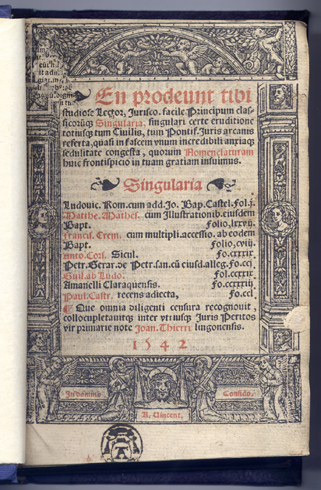 En prodeunt tibi
studiose Lector, Jurisco. facile Principum clas-
sicorumq; Singularia. singulari certe eruditione
totiusq; tum Ciuilis, tum Pontif. Juris arcanis
referta, quasi in fascem vnum incredibili anxiaq;
sedulitate congesta, quorum Nomenclaturam
huic frontispicio in tuam gratiam inuximus.
Singularia
Ludovic. Rom. cum add. Jo. Bap. Castel. Fol. j.
Matthe. Mathes. cum Illustrationib. eiusdem
Bapt. Folio, lxxvij.
Francis. Crem. cum multipli. accessio. ab eodem
Bapt. Folio, cviij.
Anto. Cors. Sicul. Fo. cxxxix.
Petr. Gerar. de Petr. san. cū eiusd. alleg. Fo. ccj
Guil. ab Ludo. Fol. ccxxix.
Amanelli Claraquensis. Fo. ccxxxiij
Paul. Castr. recens adiecta, Fo. ccl
¶ Que omnia diligenti censura recognouit,
collocupletauitq; inter vtriusq; Juris Peritos
vir primarie note Joan. Thierri lingonensis.
1542
In domino Confido.
A. Vincent.